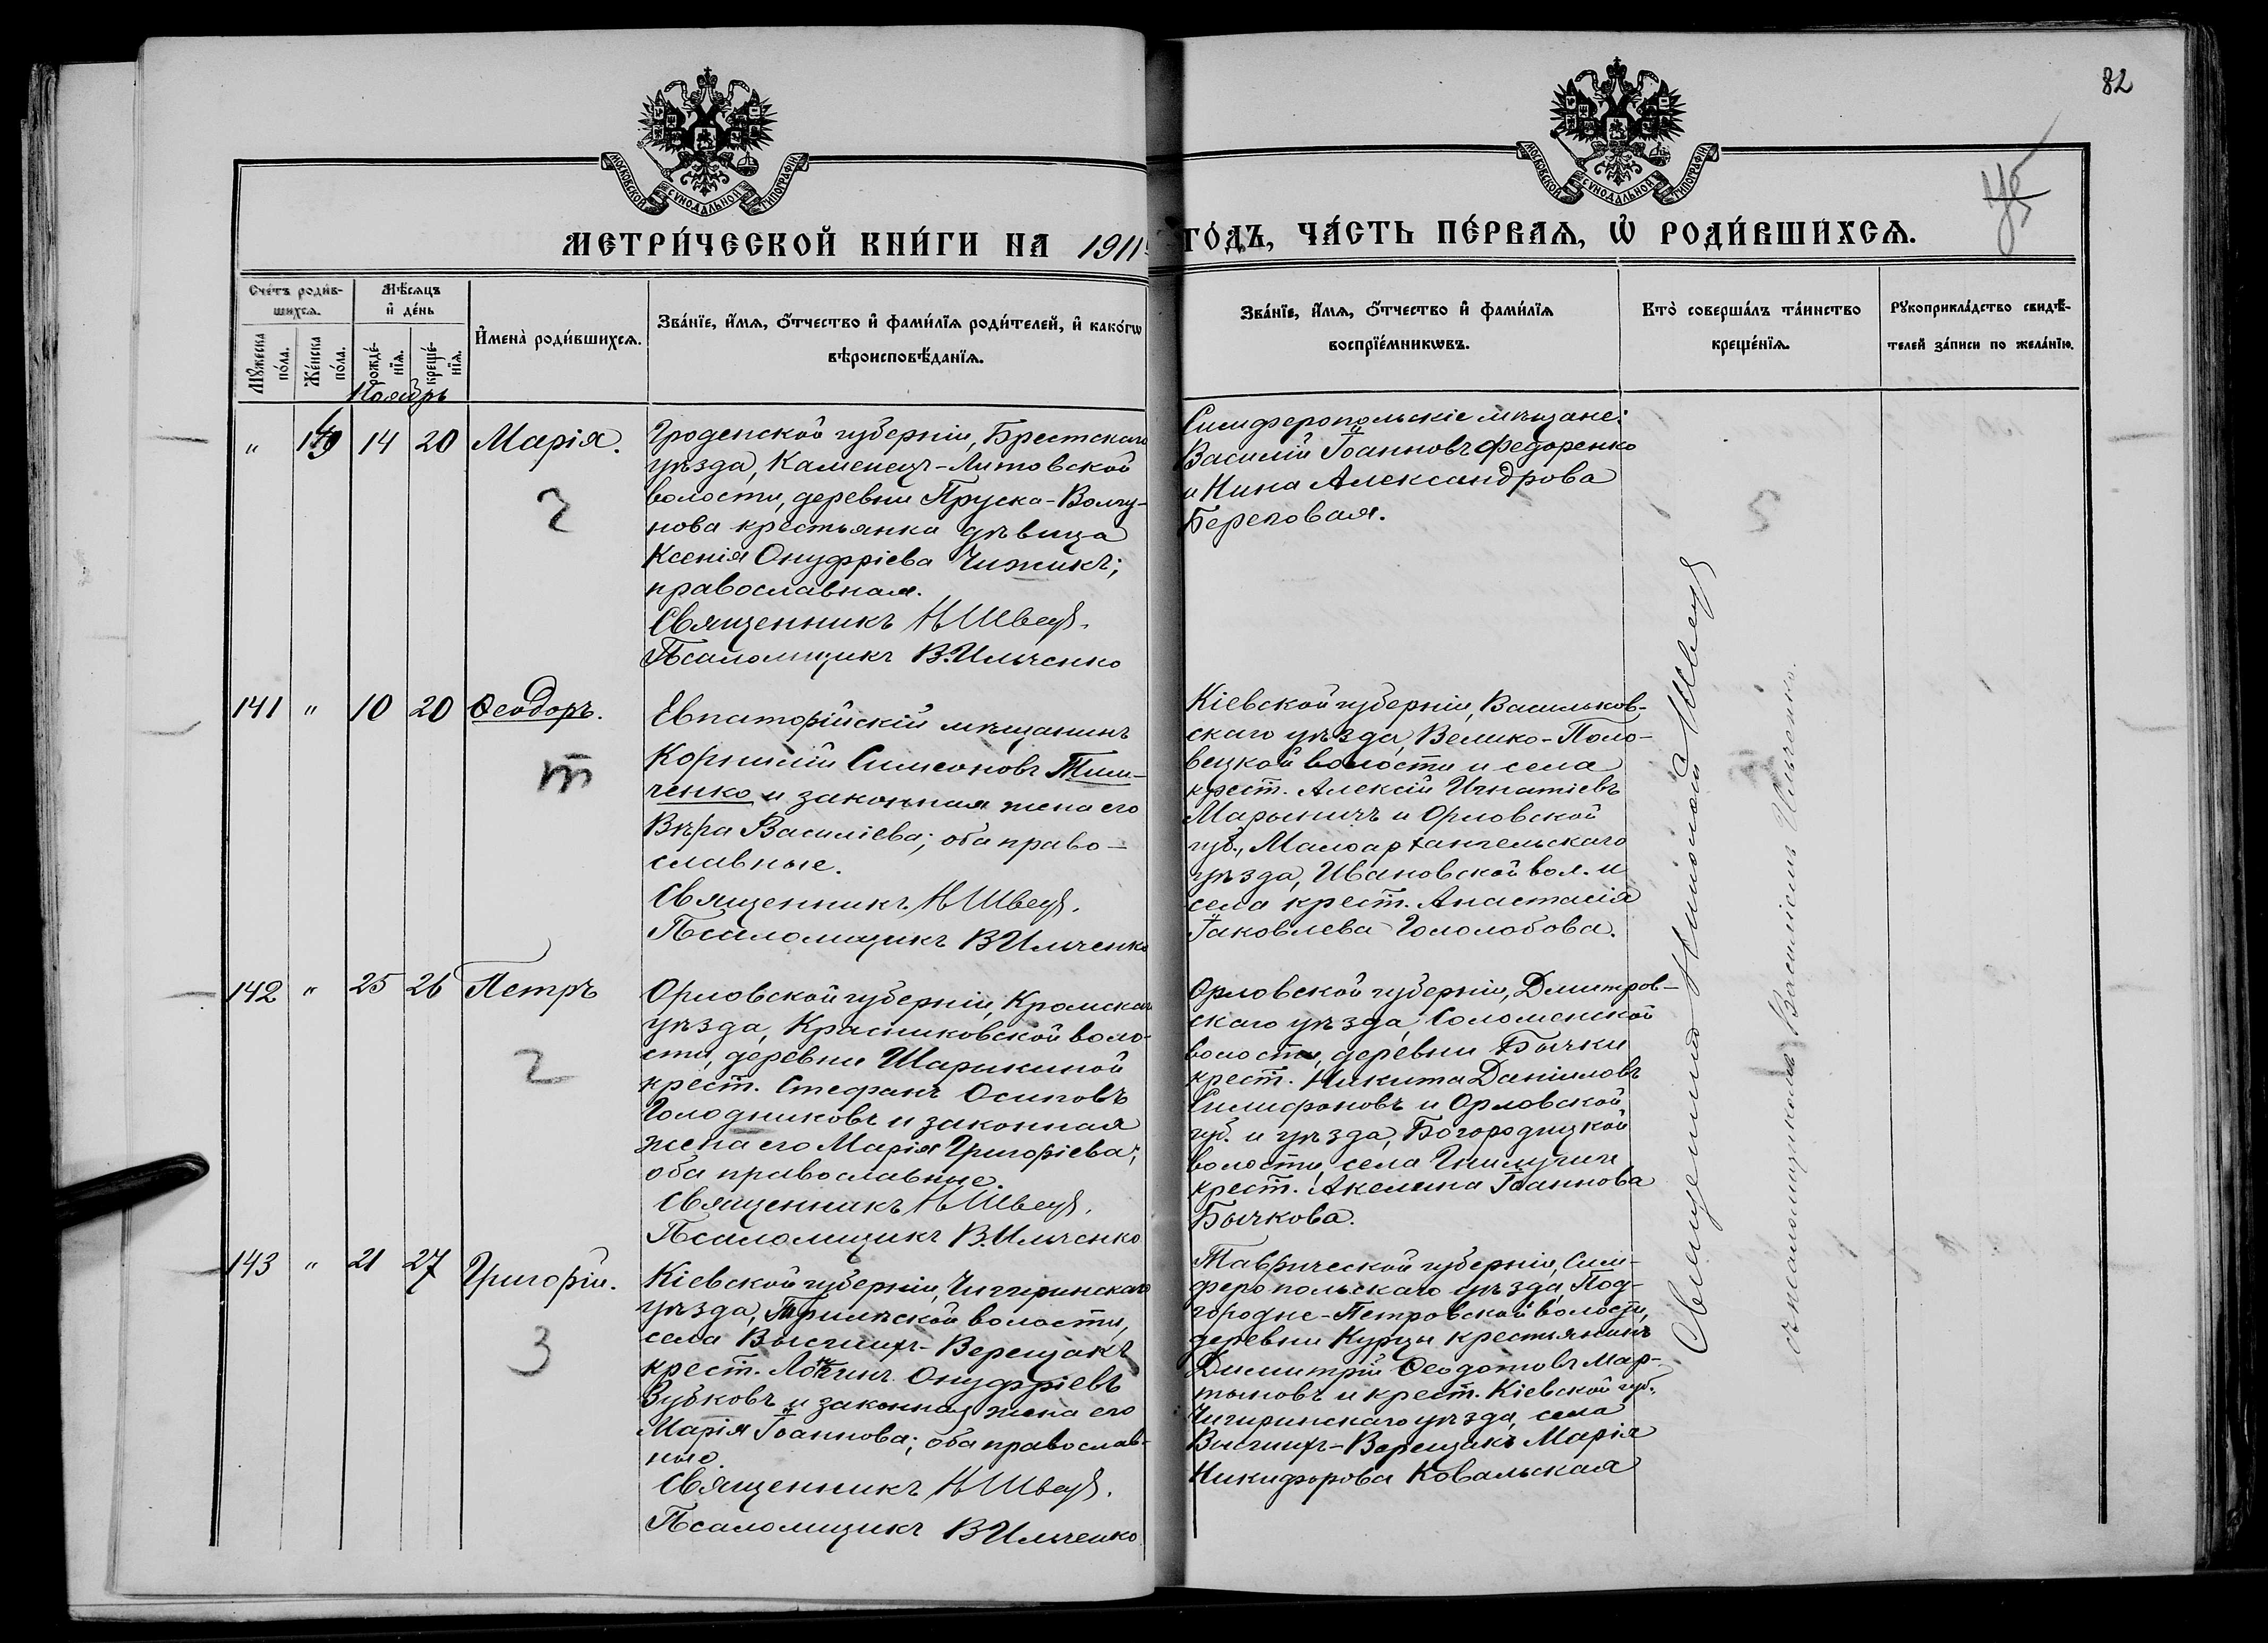 82
МОСКОВСКОЙ СѴНОДАЛЬНОЙ ТИПОГРАФІИ
МОСКОВСКОЙ СѴНОДАЛЬНОЙ ТИПОГРАФІИ
МЕТРИ́ЧЕСКОЙ КНИ́ГИ НА 1911
ГО́ДЪ, ЧА́СТЬ ПЕ́РВАѦ, Ѡ҆ РОДИ́ВШИХСѦ.
Сче́тъ роди́в-
шихсѧ.
Мꙋ́жеска по́ла.
Же́нска по́ла.
Мѣ́сѧцъ
и҆ де́нь
рожде́-
нїѧ.
креще́-
нїѧ.
И҆мена̀ роди́вшихсѧ.
Зва́нїе, и҆́мѧ, ѻ҆́тчество и҆ фами́лїѧ роди́телей, и҆ како́гѡ
вѣроисповѣ́данїѧ.
Зва́нїе, и҆́мѧ, ѻ҆́тчество и҆ фами́лїѧ
воспрїе́мникѡвъ.
Кто̀ соверша́лъ та́инство
креще́нїѧ.
Рꙋкоприкла́дство свидѣ́-
телей за́писи по жела́нїю.
Ноябрь
" 140 14 20 Марія.
Гроденской губерніи, Брестскаго
уѣзда, Каменецъ-Литовской
волости, деревни Пруска-Волчу-
нова крестьянка дѣвица
Ксенія Онуфріева Чижикъ;
православная.
Священникъ Н Швецъ.
Псаломщикъ В. Ильченко
Симферопольскіе мѣщане:
Василій Іоанновъ Федоренко
и Нина Александрова
Береговая.
2
5
141 " 10 20 Ѳеодоръ.
Евпаторійскій мѣщанинъ
Корнилій Симеоновъ Тим-
ченко и законная жена его
Вѣра Василіева; оба право-
славные.
Священникъ Н Швецъ.
Псаломщикъ В Ильченко
Кіевской губерніи, Васильков-
скаго уѣзда, Велико-Поло-
вецкой волости и села
крест. Алексій Игнатіевъ
Марыничъ и Орловской
губ., Малоархангельскаго
уѣзда, Ивановской вол. и
села крест. Анастасія
Іаковлева Гололобова.
т
142 " 25 26 Петръ
Орловской губерніи, Кромскаго
уѣзда, Красниковской воло-
сти, деревни Шарикиной
крест. Стефанъ Осиповъ
Голодниковъ и законная
жена его Марія Григоріева;
оба православные.
Священникъ Н Швецъ.
Псаломщикъ В. Ильченко
Орловской губерніи, Дмитров-
скаго уѣзда, Соломенской
волости, деревни Бычки
крест. Никита Даніиловъ
Филифоновъ и Орловской
губ. и уѣзда, Богородицкой
волости, села
крест. Акелина Іоаннова
Бычкова.
2
143 " 21 27 Григорій.
Кіевской губерніи, Чигиринскаго
уѣзда, Трилѣской волости,
села Высшихъ-Верещакъ
крест. Онуфріевъ
Зубковъ и законная жена его
Марія Іоаннова; оба православ-
ные.
Священникъ Н Швецъ.
Псаломщикъ В Ильченко
Таврической губерніи, Сим-
феропольскаго уѣзда, Под-
городне-Петровской волости,
деревни Курцы крестьянинъ
Димитрій Ѳеодотовъ Мар-
тыновъ и крест. Кіевской губ.,
Чигиринскаго уѣзда, села
Высшихъ-Верещакъ Марія
Никифорова Ковальская
3
Священникъ Николай Швецъ
съ псаломщикомъ Василіемъ Ильченко.